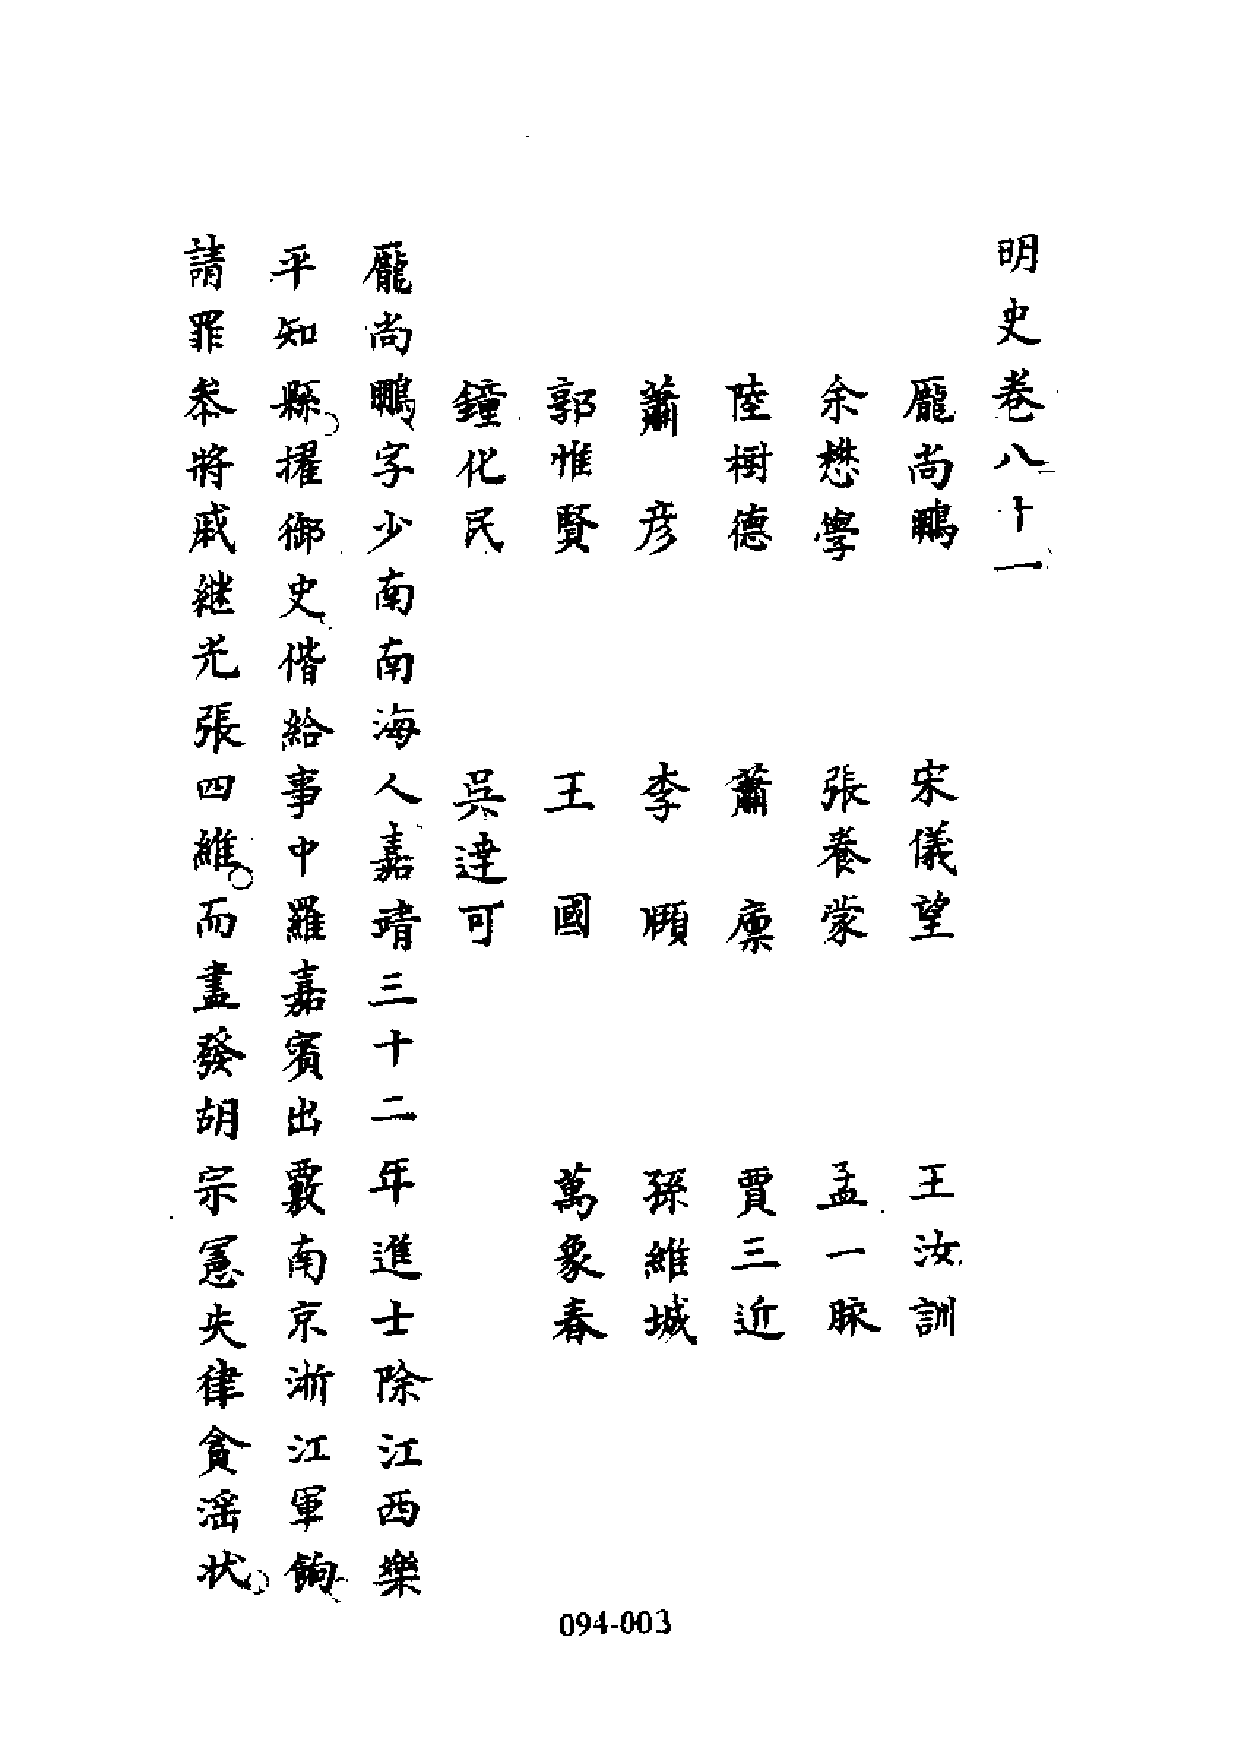 明史卷八十一
龐尚鵬　宋儀望　王汝訓
余懋學　張養蒙　孟一脈
陸樹德　蕭廩　賈三近
蕭彥　李頤　孫維城
郭惟賢　王國　萬象春
鐘化民　吳達可
龐尚鵬字少南南海人嘉靖三十二年進士除江西樂
平知縣擢御史偕給事中羅嘉賓出覈南京浙江軍餉
請罪參將戚継光張四維而盡發胡宗憲失律貪淫狀
094-003